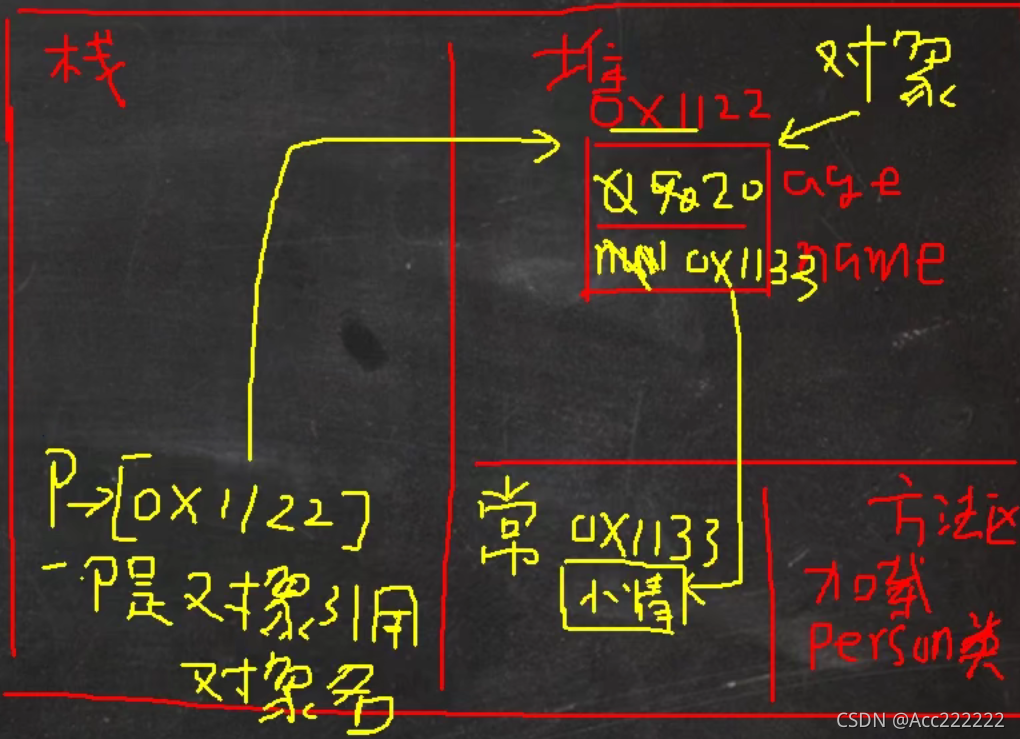 栈
堆
对象
0x1122
0 90 20 age
null 0x1133 name
P→[0x1122]
-P是对象引用
对象名
常
0x1133
小倩
方法区
加载
Person类
CSDN @Acc222222